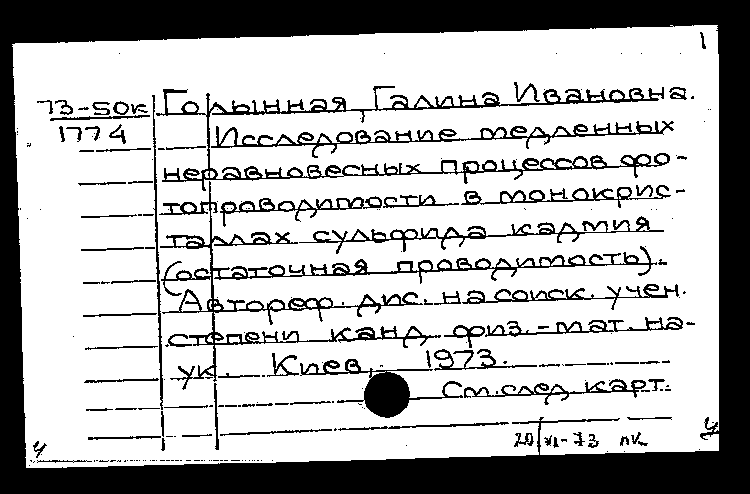 1
73-50к Голынная, Галина Ивановна.
1774 Исследование медленных
неравновесных процессов фо-
топроводимости в монокрис-
таллах сульфида кадмия
(остаточная проводимость).
Автореф. дис. на соиск. учен.
степени канд. физ.-мат. на-
ук. Киев, 1973.
См. след. карт.
20/VI-73 пк
у у